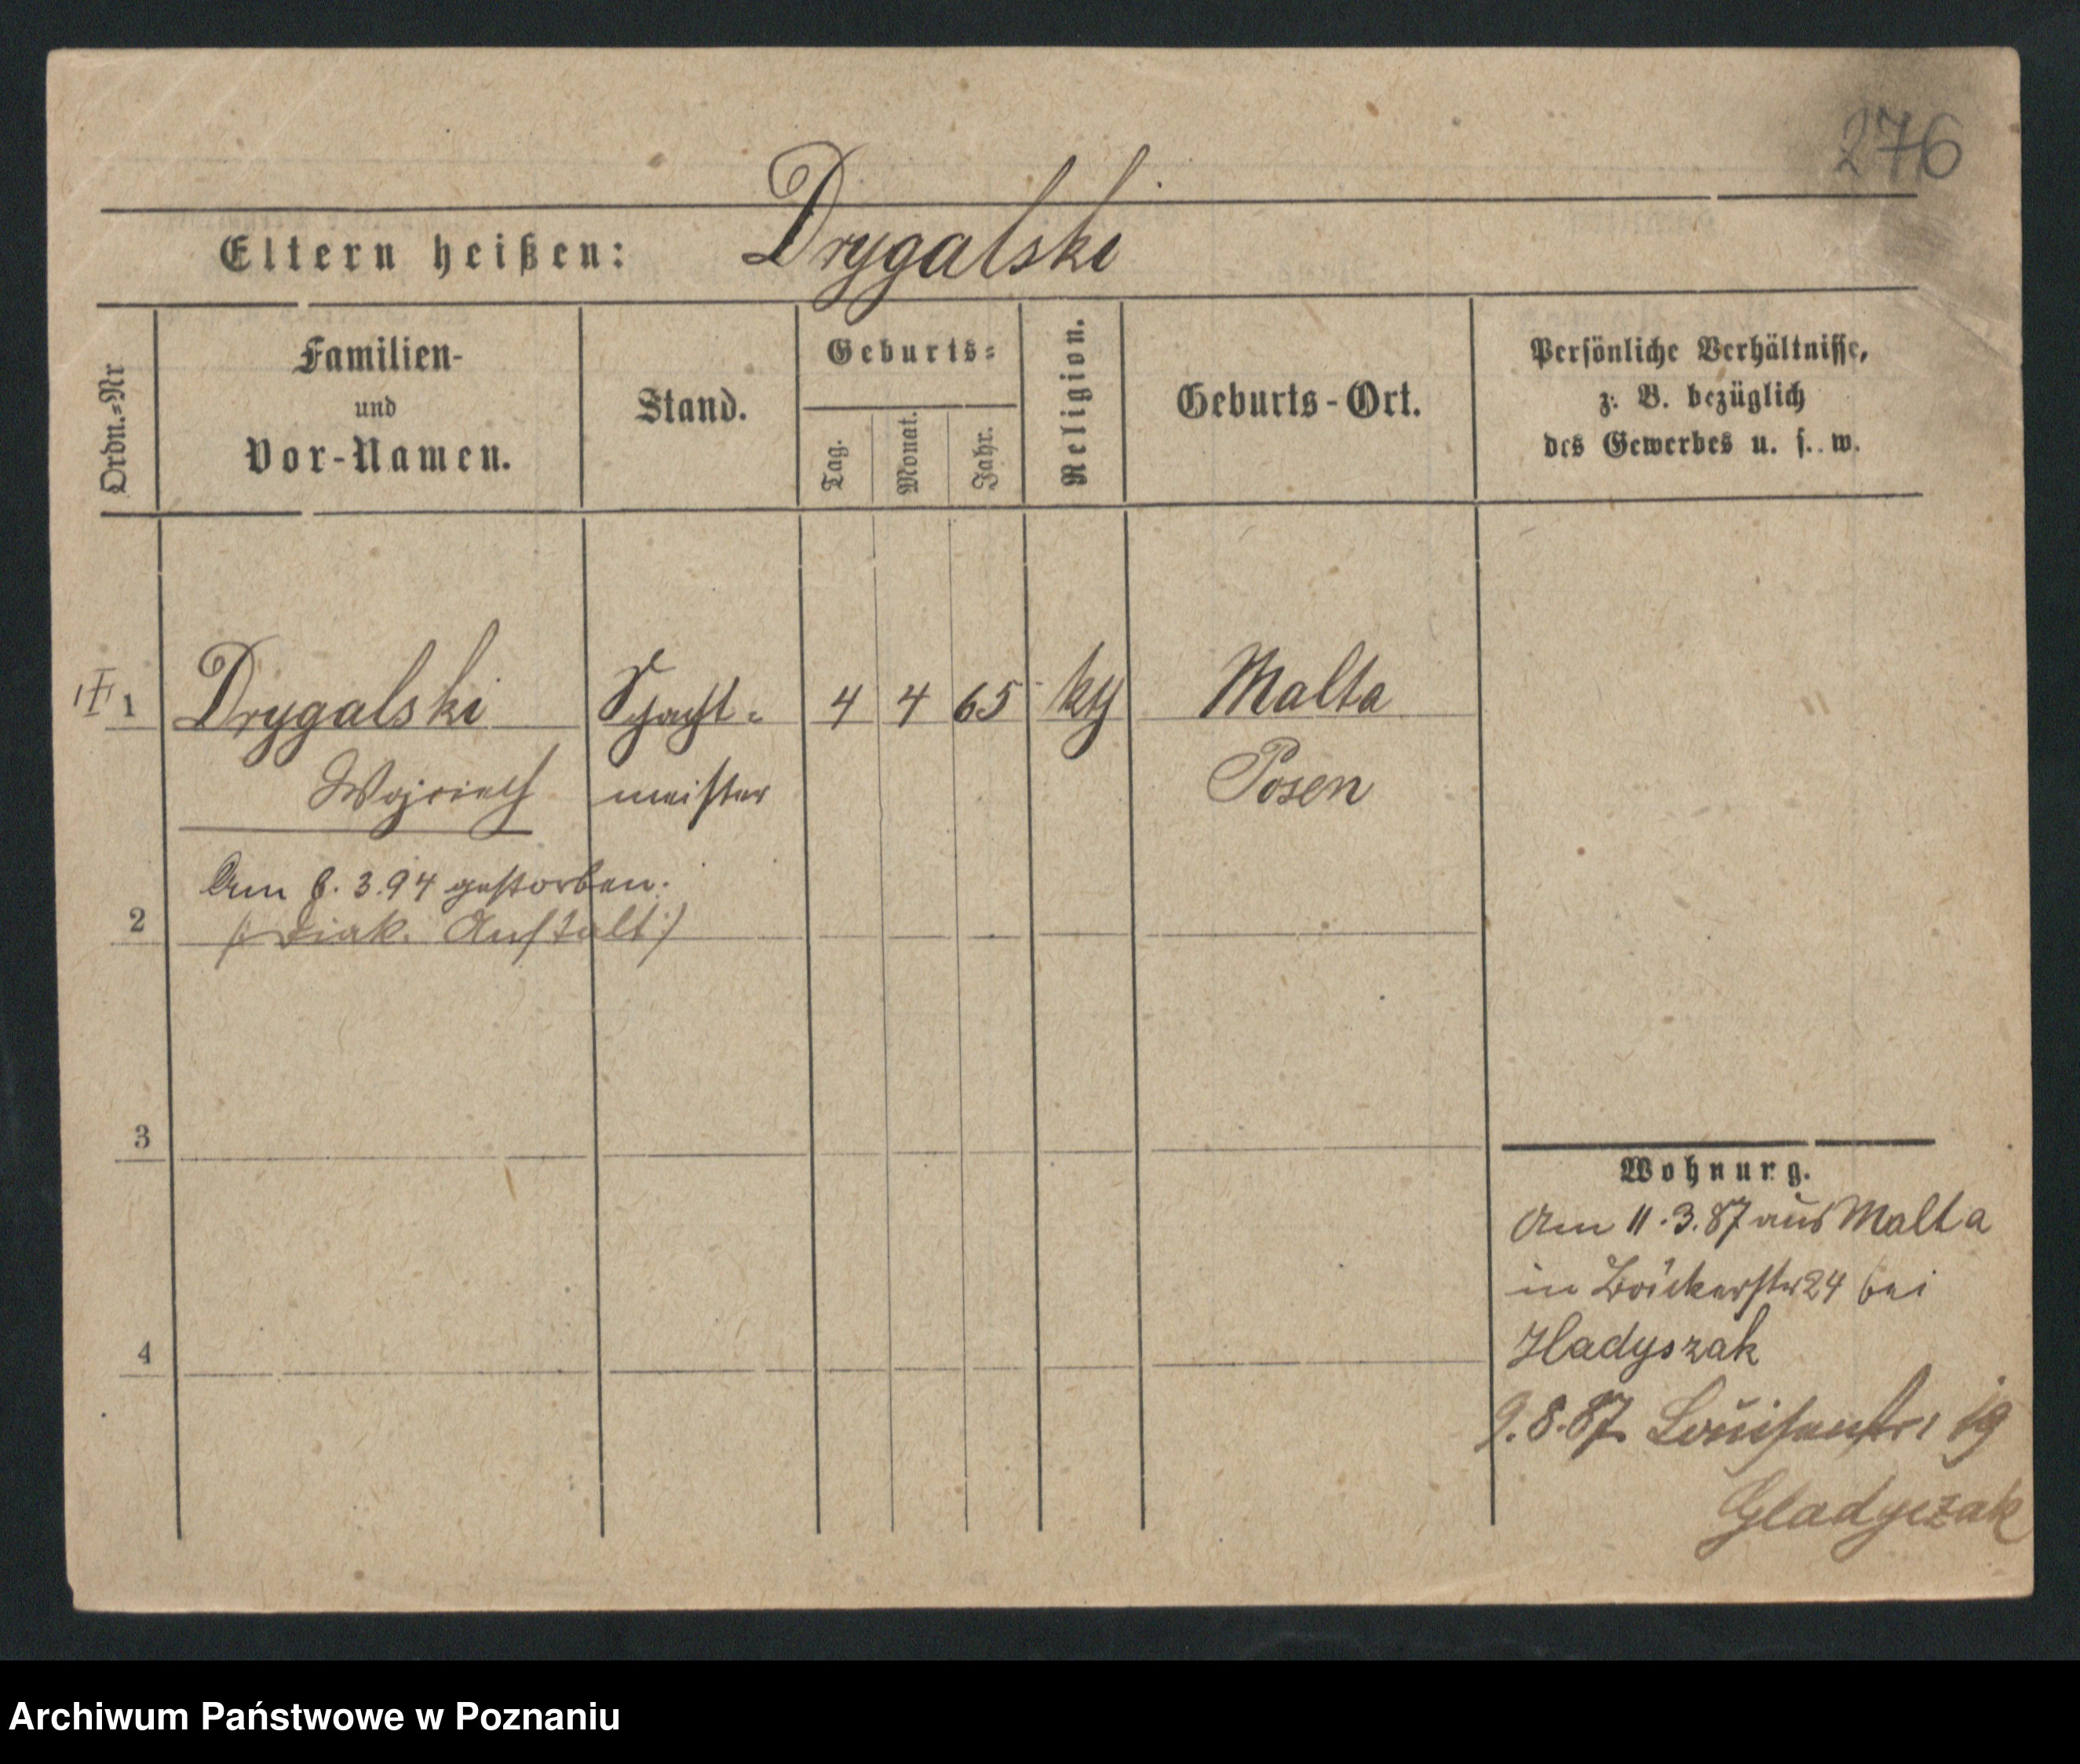 276
Eltern heißen: Drygalski
Ordn.=Nr
Familien-
und
Vor-Namen.
Stand.
Geburts=
Tag.
Monat.
Jahr.
Religion.
Geburts-Ort.
Persönliche Verhältnisse,
z. B. bezüglich
des Gewerbes u. s. w.
1 Drygalski Schacht= 4 4 65 kth Malta
Wojciech meister Posen
Am 6. 3. 94 gestorben.
2 (: Diak. Anstalt :)
3
4
Wohnung.
Am 11. 3. 87 aus Malta
in Bäckerstr 24 bei
Hladyszak
9. 8. 87 Louisenstr. 19
Gladyezak